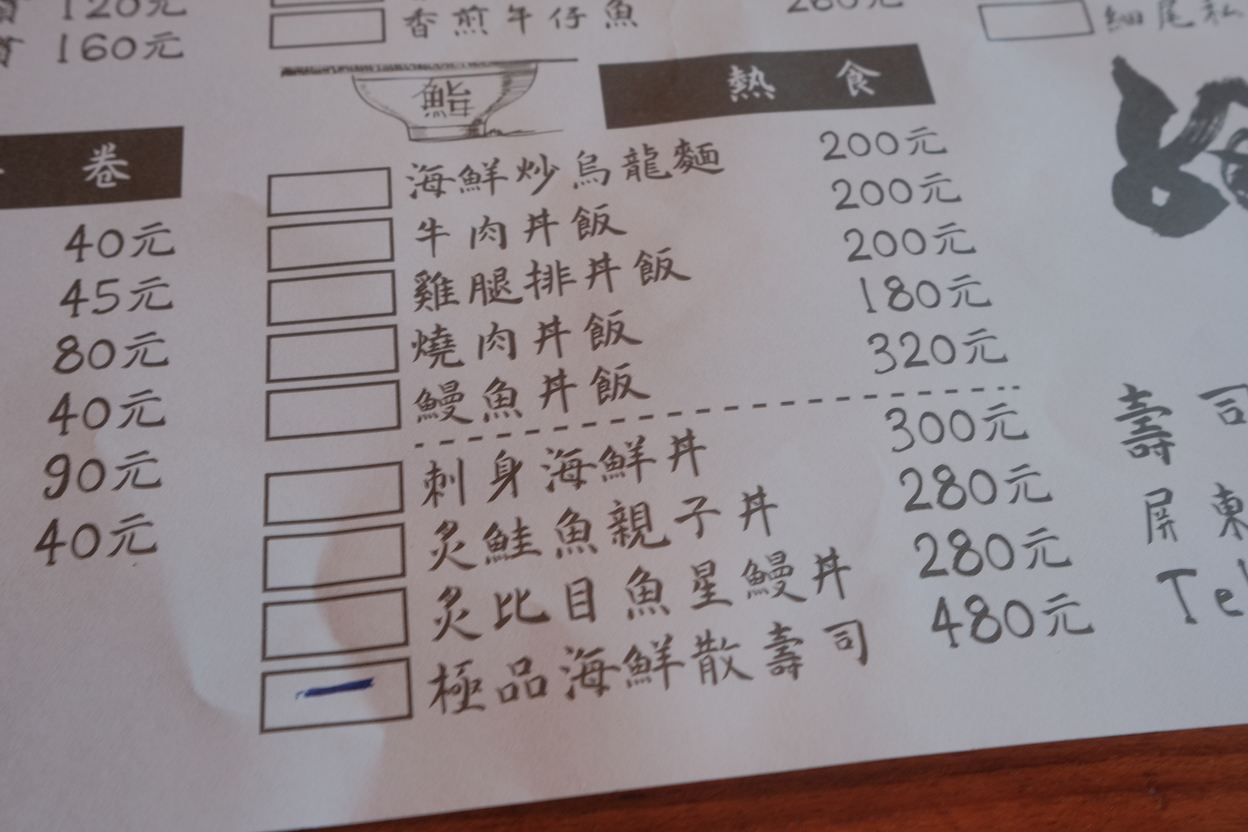 120元
160元
卷
40元
45元
80元
40元
90元
40元
香煎午仔魚 280元
鮨
熱食
海鮮炒烏龍麵 200元
牛肉丼飯 200元
雞腿排丼飯 200元
燒肉丼飯 180元
鰻魚丼飯 320元
刺身海鮮丼 300元
炙鮭魚親子丼 280元
炙比目魚星鰻丼 280元
極品海鮮散壽司 480元
細尾私
壽司
屏東
Tel